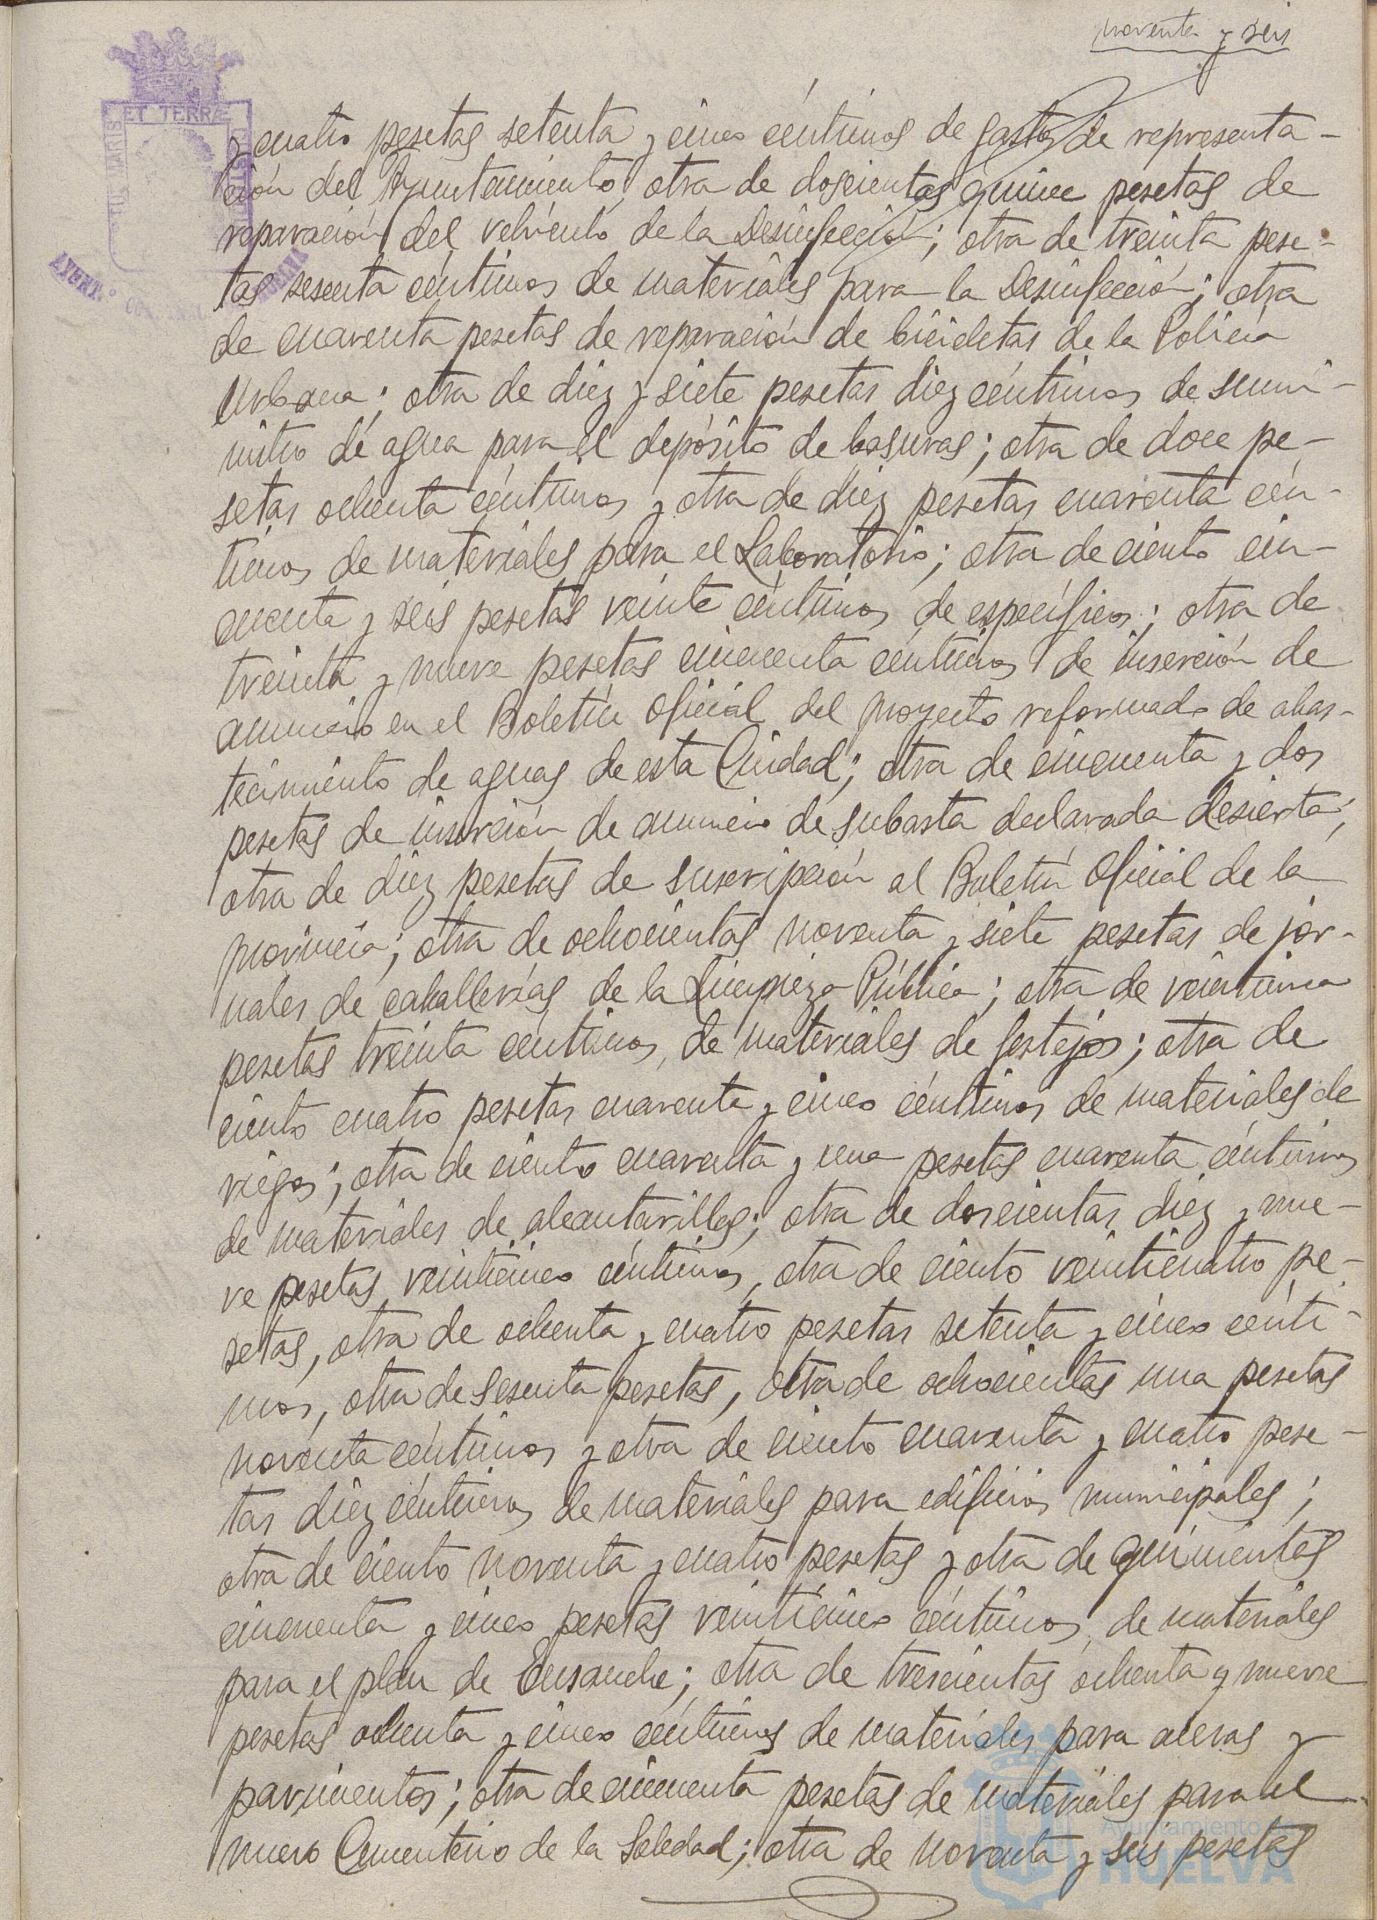 noventa y seis
y cuatro pesetas setenta y cinco céntimos de gastos de representa-
ción del Ayuntamiento, otra de doscientas quince pesetas de
reparación del vehículo de la Desinfección; otra de treinta pese-
tas sesenta céntimos de materiales para la Desinfección; otra
de cuarenta pesetas de reparación de bicicletas de la Policía
Urbana; otra de diez y siete pesetas diez céntimos de sumi-
nistro de agua para el depósito de basuras; otra de doce pe-
setas ochenta céntimos y otra de diez pesetas cuarenta cén-
timos de materiales para el Laboratorio; otra de ciento cin-
cuenta y seis pesetas veinte céntimos de específicos; otra de
treinta y nueve pesetas cincuenta céntimos de inserción de
anuncio en el Boletín Oficial del proyecto reformado de abas-
tecimiento de aguas de esta Ciudad; otra de cincuenta y dos
pesetas de inserción de anuncio de subasta declarada desierta;
otra de diez pesetas de suscripción al Boletín Oficial de la
provincia; otra de ochocientas noventa y siete pesetas de jor-
nales de caballerías de la Limpieza Pública; otra de veintiuna
pesetas treinta céntimos de materiales de festejos; otra de
ciento cuatro pesetas cuarenta y cinco céntimos de materiales de
riegos; otra de ciento cuarenta y una pesetas cuarenta céntimos
de materiales de alcantarillas; otra de doscientas diez y nue-
ve pesetas veinticinco céntimos, otra de ciento veinticuatro pe-
setas, otra de ochenta y cuatro pesetas setenta y cinco cénti-
mos, otra de sesenta pesetas, otra de ochocientas una pesetas
noventa céntimos y otra de ciento cuarenta y cuatro pese-
tas diez céntimos de materiales para edificios municipales;
otra de ciento noventa y cuatro pesetas y otra de quinientas
cincuenta y cinco pesetas veinticinco céntimos de materiales
para el plan de Ensanche; otra de trescientas ochenta y nueve
pesetas ochenta y cinco céntimos de materiales para aceras y
pavimentos; otra de cincuenta pesetas de materiales para el
nuevo Cementerio de la Soledad; otra de noventa y seis pesetas
ET TERRÆ
TUS MARIS
AYUNT.º CONST.
HUELVA
Ayuntamiento de
HUELVA